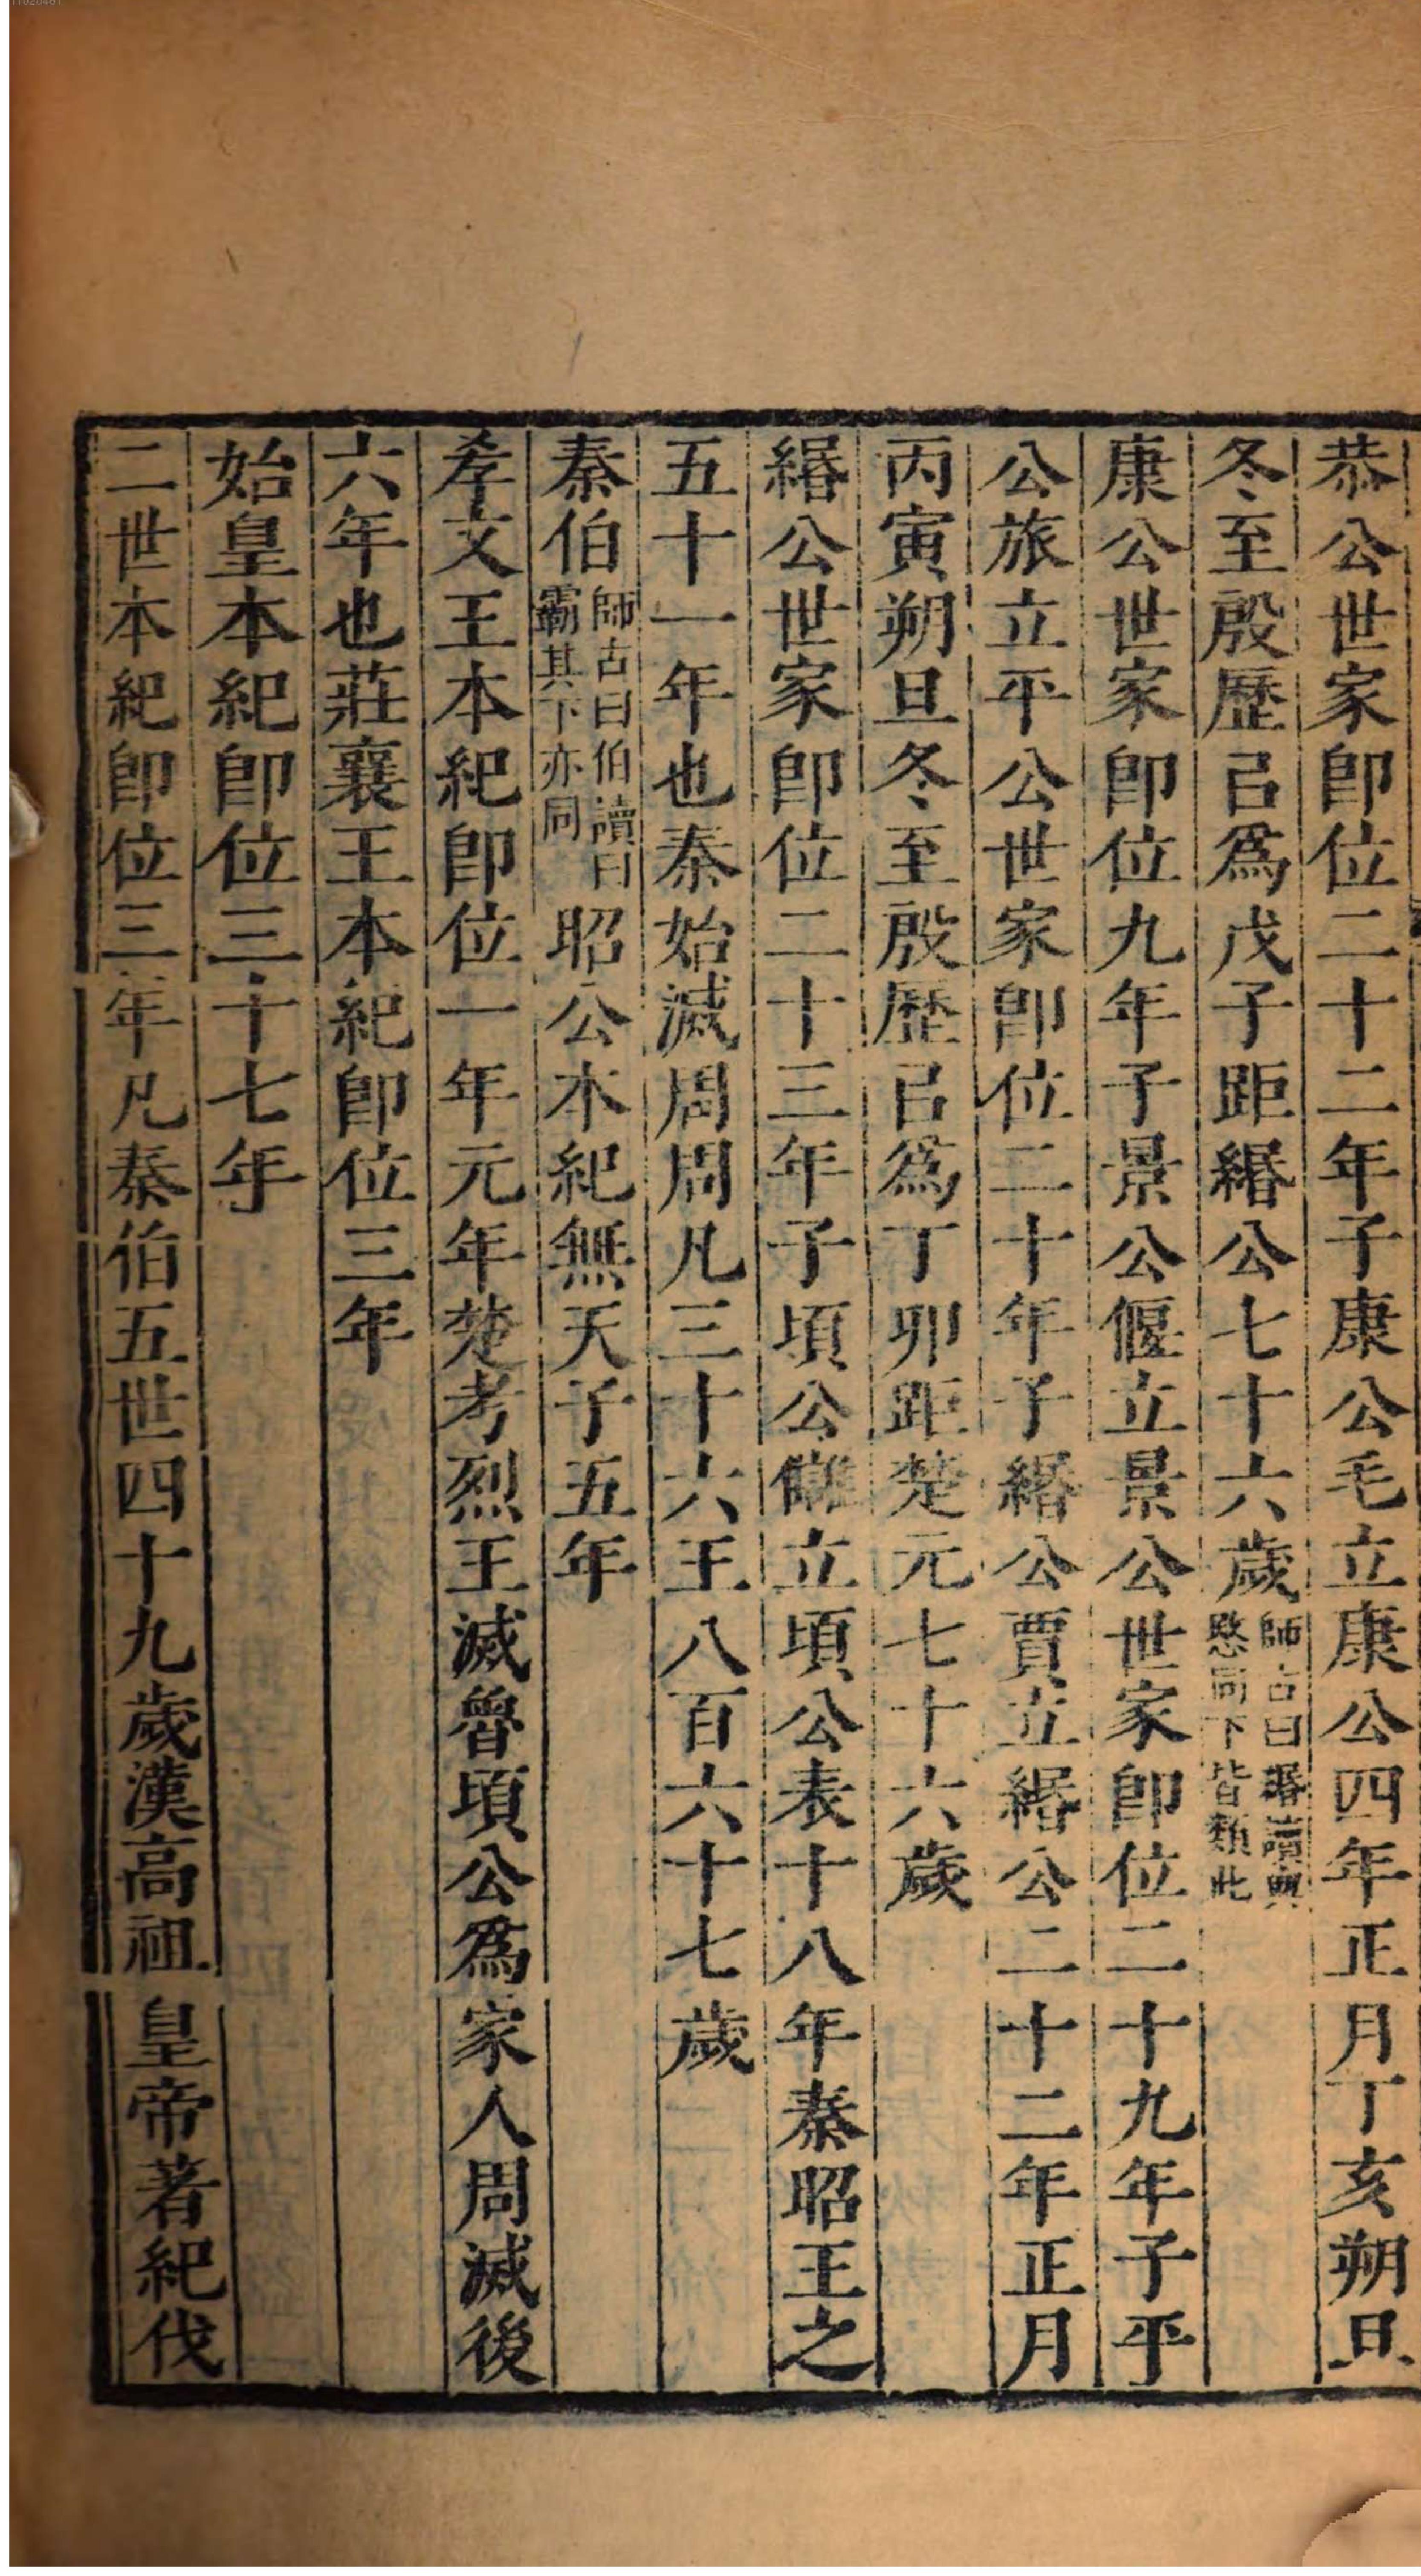 恭公世家卽位二十二年子康公毛立康公四年正月丁亥朔旦
冬至殷歷㠯爲戊子距緡公七十六歲師古曰緡讀與愍同下皆類此
康公世家卽位九年子景公偃立景公世家卽位二十九年子平
公旅立平公世家卽位二十年子緡公賈立緡公二十二年正月
丙寅朔旦冬至殷歷㠯爲丁卯距楚元七十六歲
緡公世家卽位二十三年子頃公讎立頃公表十八年秦昭王之
五十一年也秦始滅周周凡三十六王八百六十七歲
秦伯師古曰伯讀曰霸其下亦同昭公本紀無天子五年
孝文王本紀卽位一年元年楚考烈王滅魯頃公爲家人周滅後
六年也莊襄王本紀卽位三年
始皇本紀卽位三十七年
二世本紀卽位三年凡秦伯五世四十九歲漢高祖皇帝著紀伐